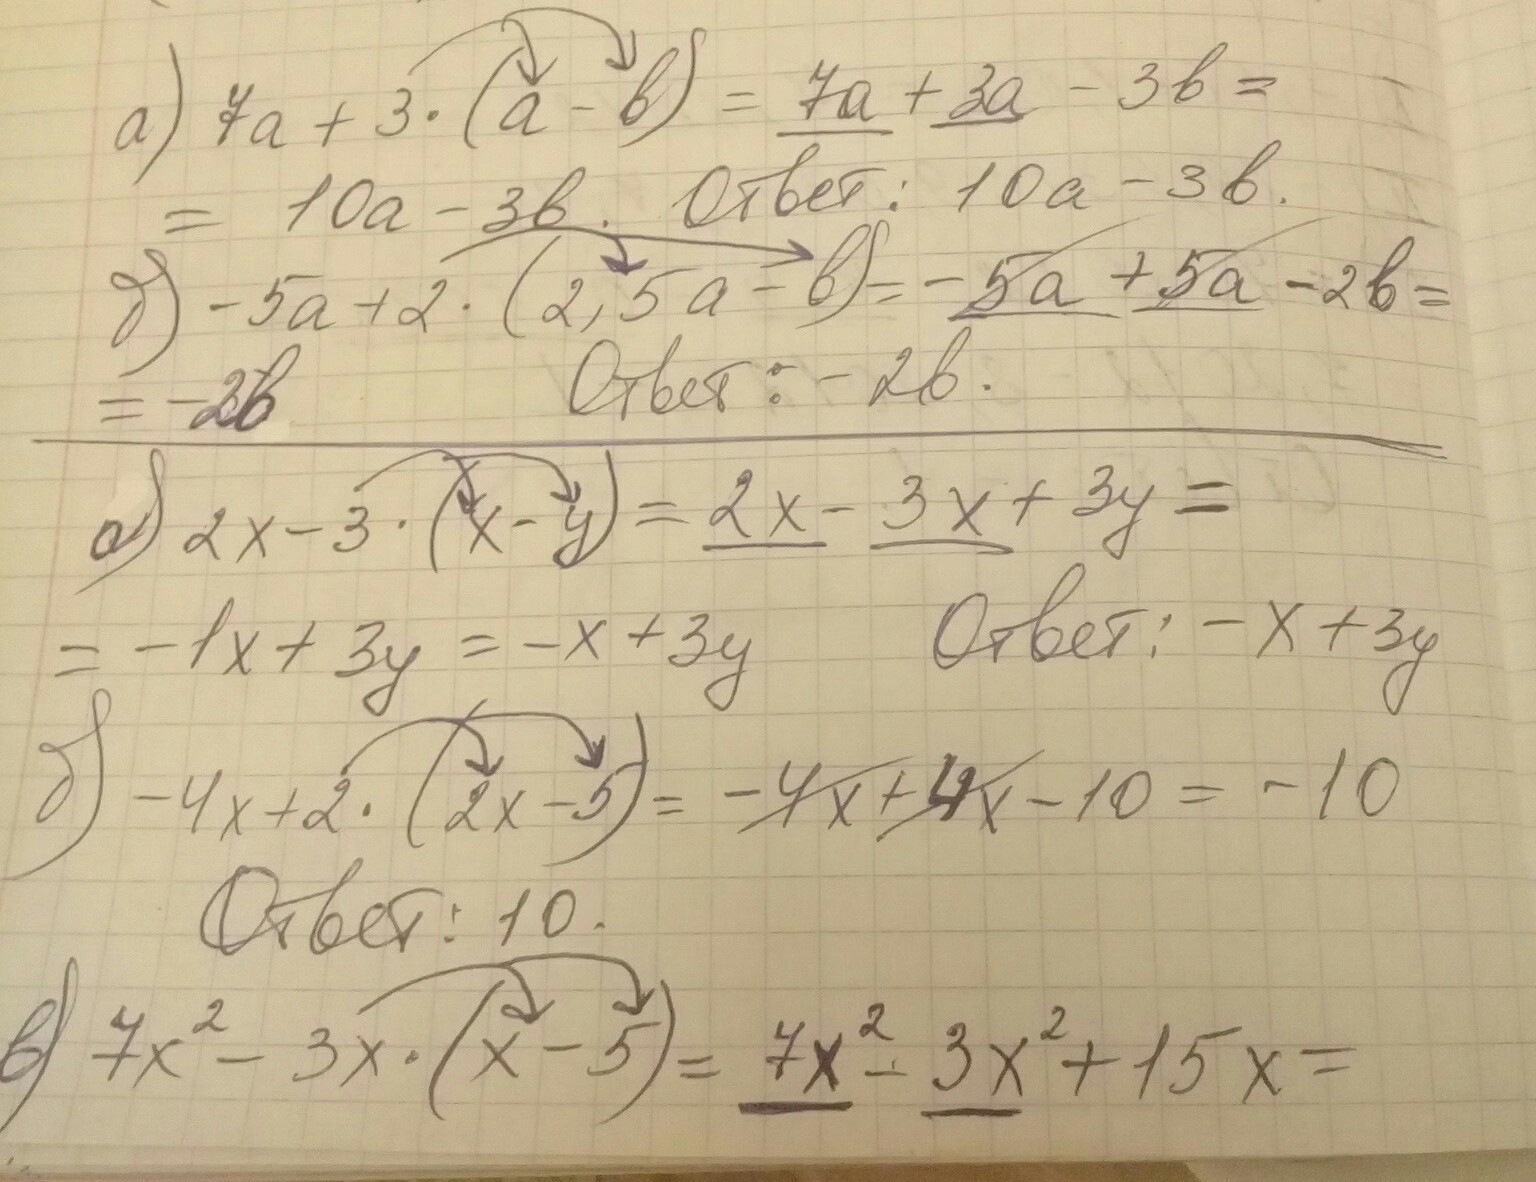 а) 7а + 3·(а - в) = 7а + 3а - 3в =
= 10а - 3в. Ответ: 10а - 3в.
б) -5а + 2·(2,5а - в) = -5а + 5а - 2в =
= -2в Ответ: -2в.
а) 2x - 3·(x - y) = 2x - 3x + 3y =
= -1x + 3y = -x + 3y Ответ: -x + 3y
б) -4x + 2·(2x - 5) = -4x + 4x - 10 = -10
Ответ: 10.
в) 7x² - 3x·(x - 5) = 7x² - 3x² + 15x =